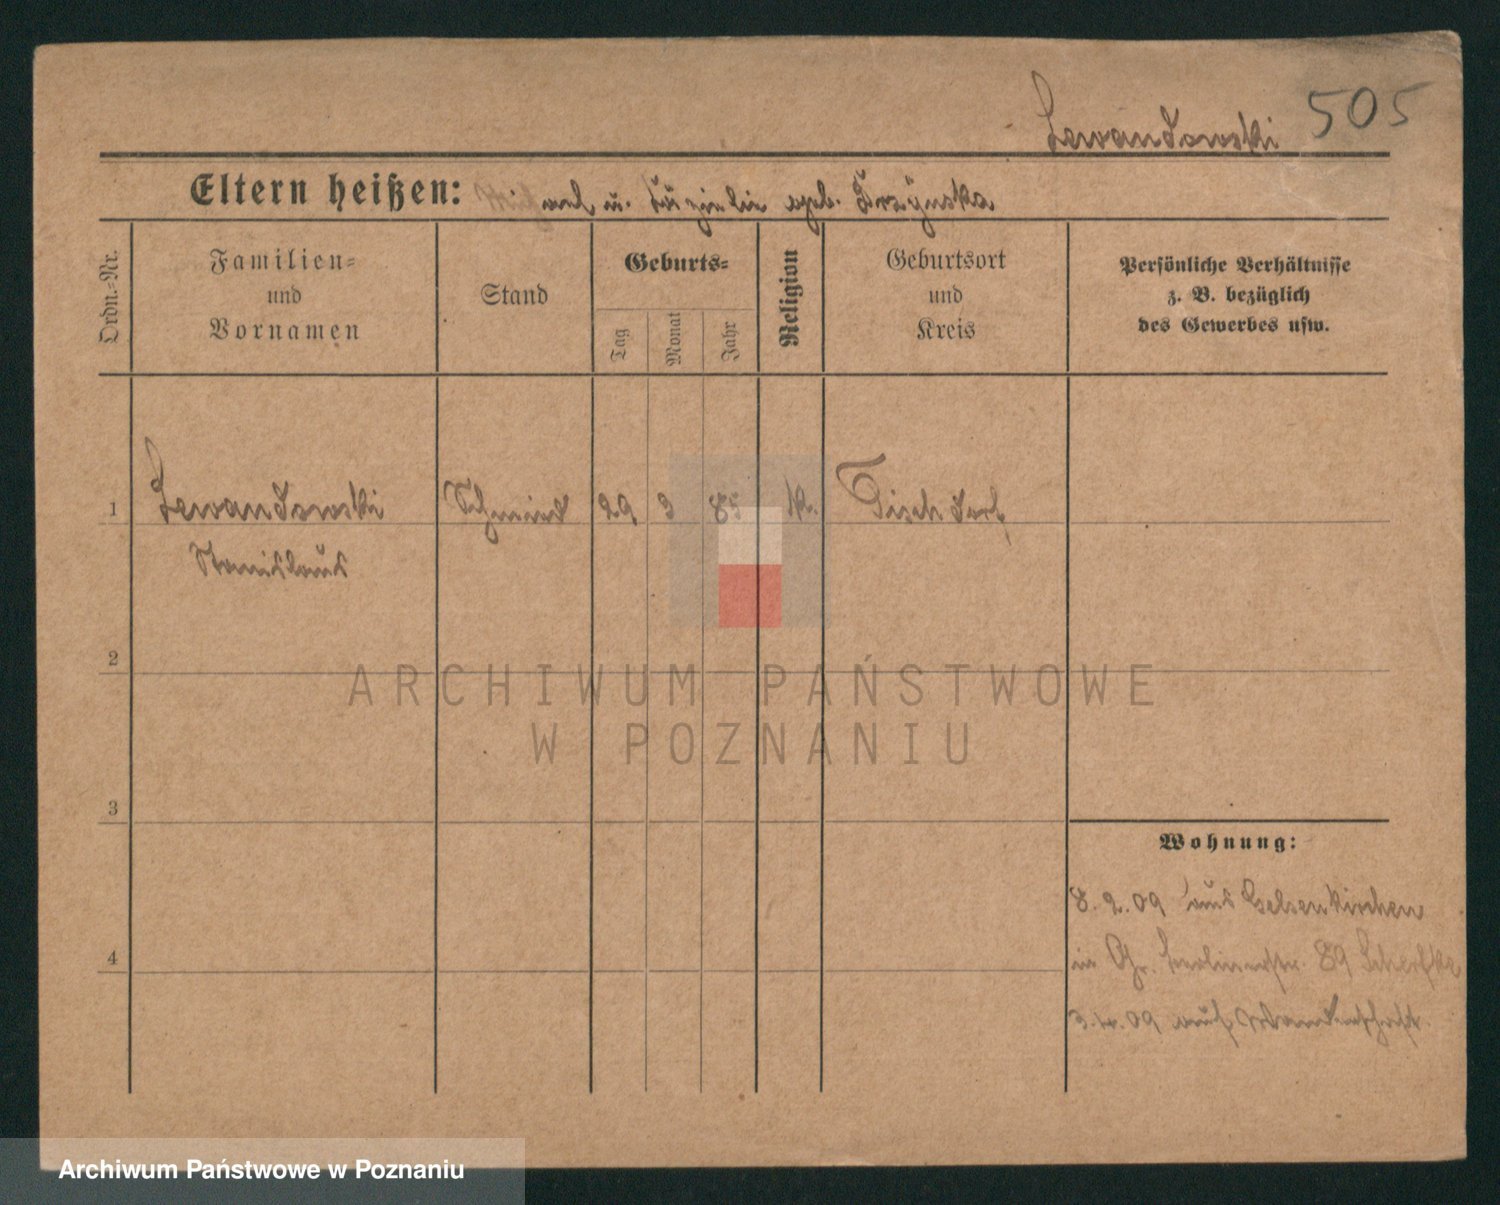 Lewandowski 505
Eltern heißen: Michael u. geb.
Ordn.-Nr.
Familien=
und
Vornamen
Stand
Geburts=
Tag
Monat
Jahr
Religion
Geburtsort
und
Kreis
Persönliche Verhältnisse
z. B. bezüglich
des Gewerbes usw.
1 Lewandowski Schmied 29 3 85 k. Tischdorf
Stanislaus
2
ARCHIWUM PAŃSTWOWE
W POZNANIU
3
Wohnung:
8.2.09 aus Gelsenkirchen
4
in Berlinerstr. 89
09 auf Wanderschaft
Archiwum Państwowe w Poznaniu